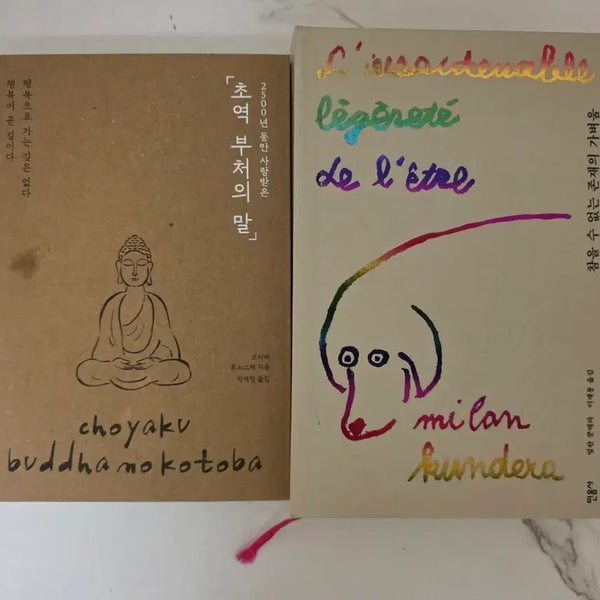 2500년 동안 사랑받은
「초역 부처의 말」
행복으로 가는 길은 없다
행복이 곧 길이다
코이케
류노스케 지음
박재현 옮김
choyaku
buddha no kotoba
L'insoutenable
légèreté
de l'être
milan
kundera
참을 수 없는 존재의 가벼움
밀란 쿤데라 이재룡 옮김
민음사